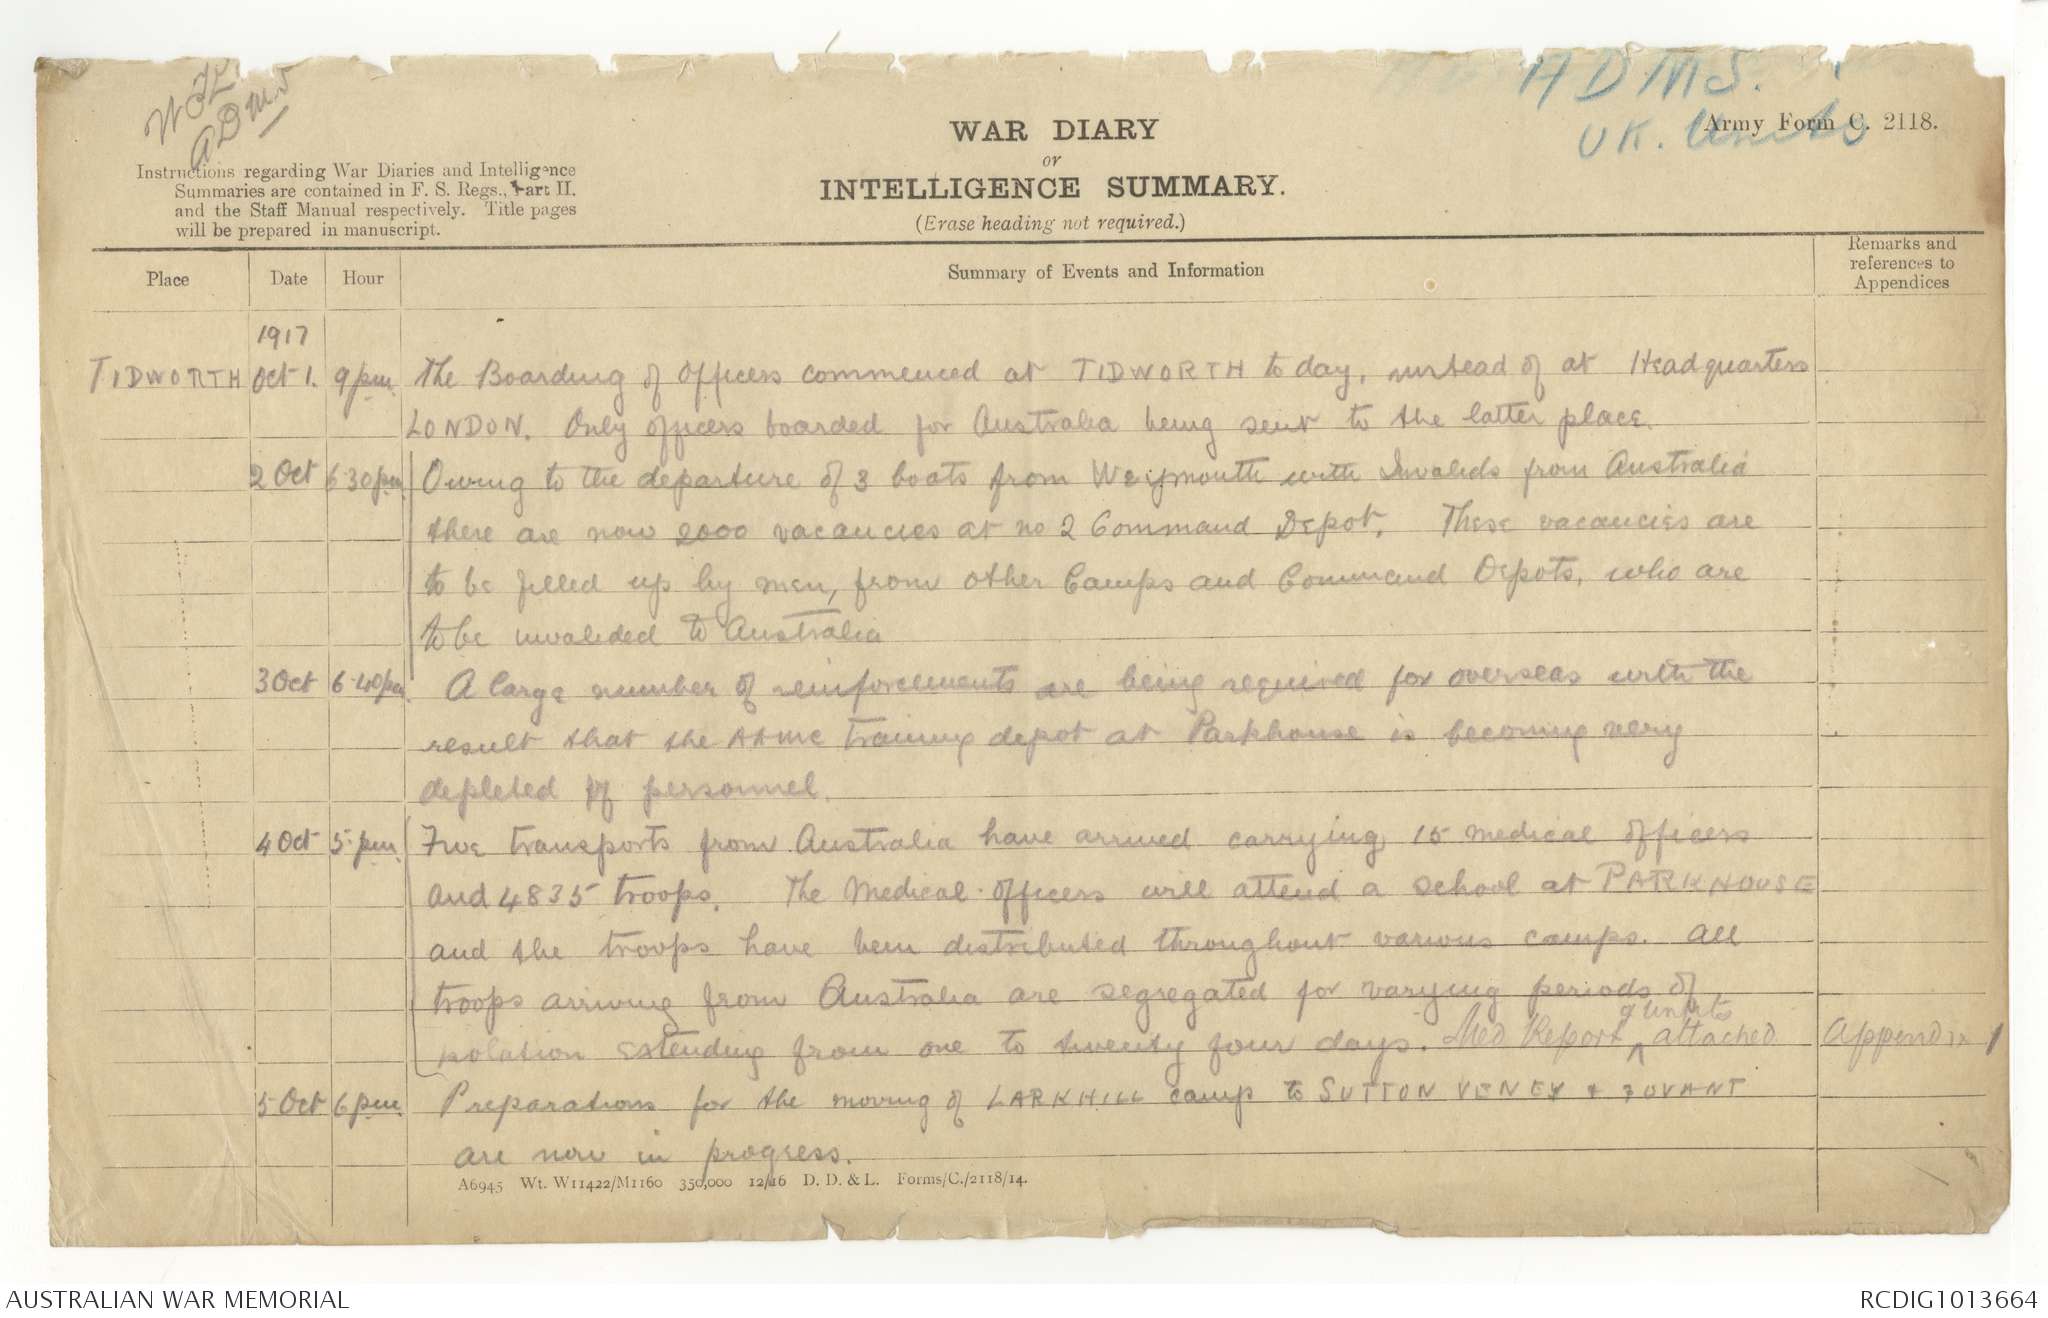 ADMS
ADMS.
UK. Units
Army Form C. 2118.
WAR DIARY
or
INTELLIGENCE SUMMARY.
(Erase heading not required.)
Instructions regarding War Diaries and Intelligence
Summaries are contained in F. S. Regs., Part II.
and the Staff Manual respectively. Title pages
will be prepared in manuscript.
Place Date Hour Summary of Events and Information Remarks and references to Appendices
1917
TIDWORTH Oct 1. 9pm. The Boarding of Officers commenced at TIDWORTH to day, instead of at Headquarters
LONDON. Only officers boarded for Australia being sent to the latter place.
2 Oct 6.30pm Owing to the departure of 3 boats from Weymouth with Invalids from Australia
there are now 2000 vacancies at no 2 Command Depot. These vacancies are
to be filled up by men, from other Camps and Command Depots, who are
to be invalided to Australia
3 Oct 6.40pm. A large number of reinforcements are being required for overseas with the
result that the AAMC training depot at Parkhouse is becoming very
depleted of personnel.
4 Oct 5.pm. Five transports from Australia have arrived carrying 15 medical officers
and 4835 troops. The Medical officers will attend a school at PARKHOUSE
and the troops have been distributed throughout various camps. All
troops arriving from Australia are segregated for varying periods of
isolation extending from one to twenty four days. Med Report of units attached Appendix 1
5 Oct 6pm. Preparations for the moving of LARKHILL camp to SUTTON VENEY & FOVANT
are now in progress.
A6945 Wt. W11422/M1160 350,000 12/16 D. D. & L. Forms/C./2118/14.
AUSTRALIAN WAR MEMORIAL
RCDIG1013664